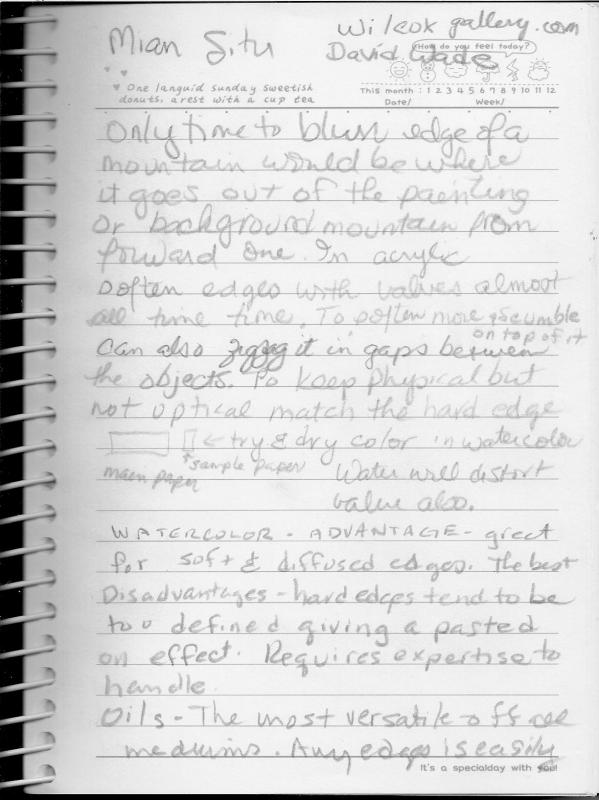 Mian Situ
Wilcox gallery.com
David Wade
How do you feel today?
♥ One languid sunday sweetish
donuts, a rest with a cup tea
This month : 1 2 3 4 5 6 7 8 9 10 11 12
Date/ Week/
Only time to blur edge of a
mountain would be where
it goes out of the painting
or background mountain from
forward one. In acrylic
soften edges with values almost
all time time. To soften more scumble
on top of it
can also zigzag it in gaps between
the objects. To keep physical but
not optical match the hard edge
← try & dry color in watercolor
↑ sample paper
main paper
Water will distort
value also.
WATERCOLOR - ADVANTAGE - great
for soft & diffused edges. The best
Disadvantages - hard edges tend to be
too defined giving a pasted
on effect. Requires expertise to
handle.
Oils - The most versatile off all
mediums. Any edge is easily
It's a specialday with you!